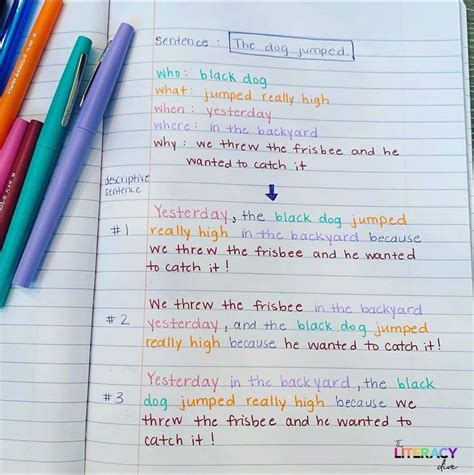 sentence : The dog jumped.
who : black dog
what : jumped really high
when : yesterday
where : in the backyard
why : we threw the frisbee and he
wanted to catch it
descriptive
sentence
#1
Yesterday, the black dog jumped
really high in the backyard because
we threw the frisbee and he wanted
to catch it!
#2
We threw the frisbee in the backyard
yesterday, and the black dog jumped
really high because he wanted to catch it!
#3
Yesterday in the backyard, the black
dog jumped really high because we
threw the frisbee and he wanted to
catch it!
The
LITERACY
dive